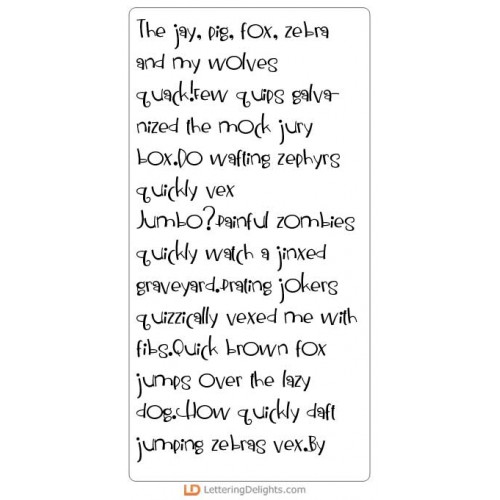 The jay, pig, fox, zebra
and my wolves
quack!Few quips galva-
nized the mock jury
box.Do wafting zephyrs
quickly vex
Jumbo?Painful zombies
quickly watch a jinxed
graveyard.Prating jokers
quizzically vexed me with
fibs.Quick brown fox
jumps over the lazy
dog.How quickly daft
jumping zebras vex.By
LD LetteringDelights.com